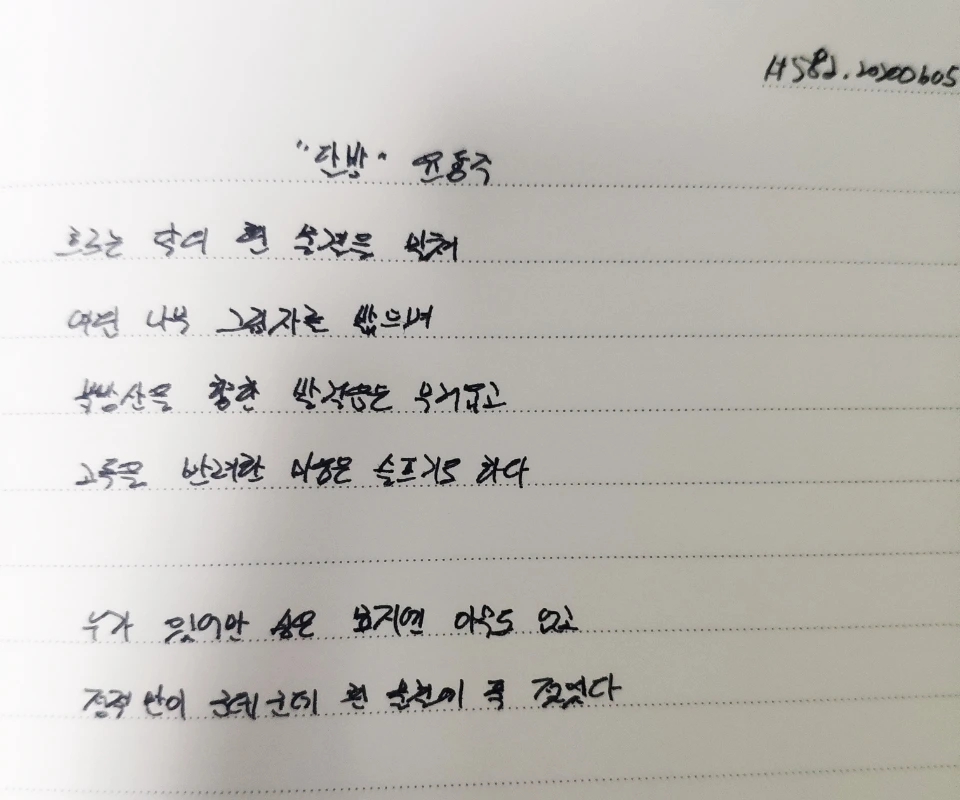 HS82.20200605
"달밤" 윤동주
흐르는 달의 흰 물결을 밀쳐
여윈 나무 그림자를 밟으며
북망산을 향한 발걸음은 무거웁고
고독을 반려한 마음은 슬프기도 하다
누가 있어만 싶은 묘지엔 아무도 없고
정적만이 군데군데 흰 물결에 폭 젖었다